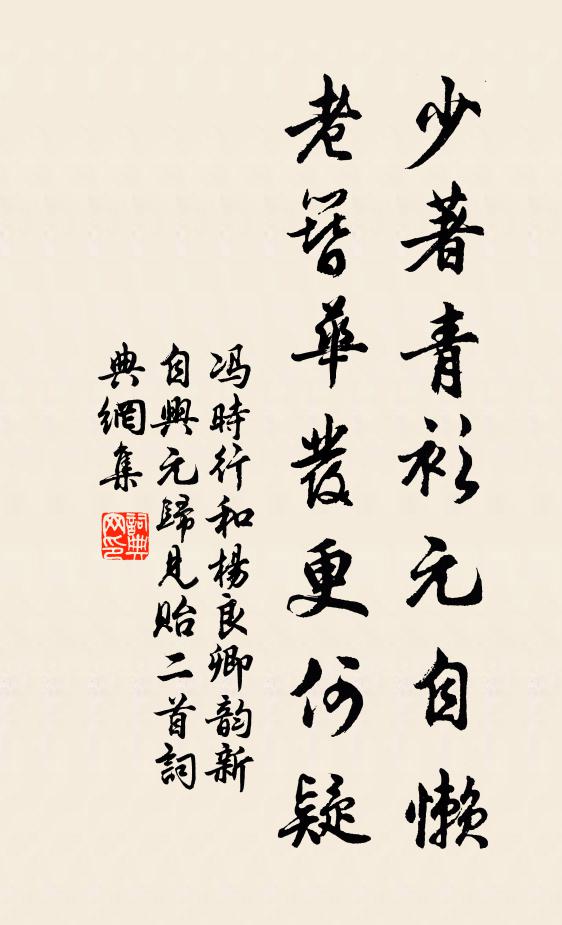 少著青衫元自懶
老簪華發更何疑
馮時行和楊良卿韵新
自興元歸見貽二首詞
典網集
詞典網印